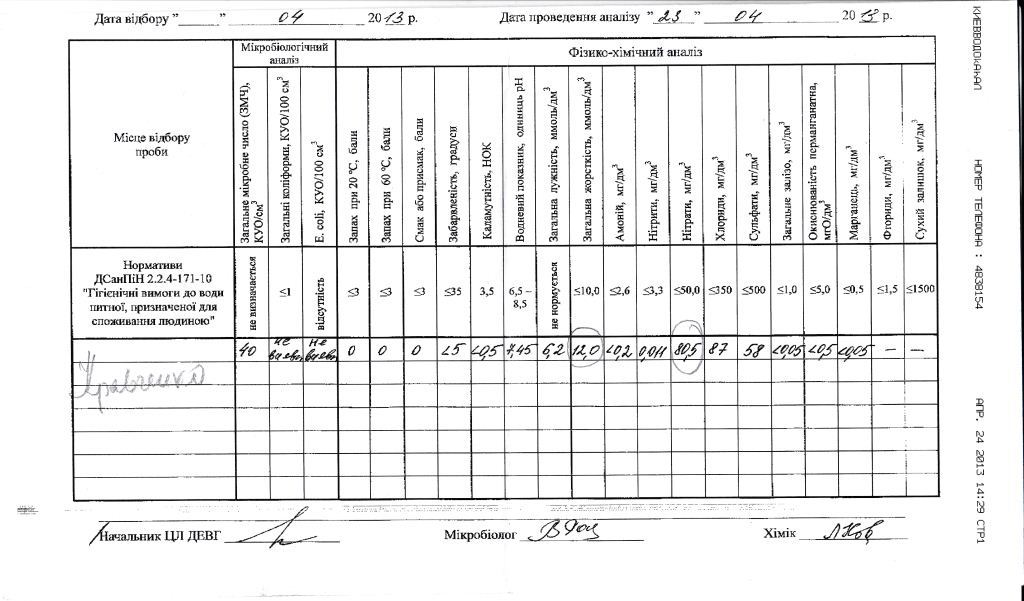 Дата відбору " " 04 2013 р. Дата проведення аналізу " 23 " 04 2013 р.
Місце відбору проби
Мікробіологічний аналіз
Фізико-хімічний аналіз
Загальне мікробне число (ЗМЧ), КУО/см³
Загальні коліформи, КУО/100 см³
E. coli, КУО/100 см³
Запах при 20 °С, бали
Запах при 60 °С, бали
Смак або присмак, бали
Забарвленість, градуси
Каламутність, НОК
Водневий показник, одиниць pH
Загальна лужність, ммоль/дм³
Загальна жорсткість, ммоль/дм³
Амоній, мг/дм³
Нітрити, мг/дм³
Нітрати, мг/дм³
Хлориди, мг/дм³
Сульфати, мг/дм³
Загальне залізо, мг/дм³
Окиснюваність перманганатна, мгО/дм³
Марганець, мг/дм³
Фториди, мг/дм³
Сухий залишок, мг/дм³
Нормативи
ДСанПіН 2.2.4-171-10
"Гігієнічні вимоги до води
питної, призначеної для
споживання людиною"
не визначається ≤1 відсутність ≤3 ≤3 ≤3 ≤35 3,5 6,5 – 8,5 не нормується ≤10,0 ≤2,6 ≤3,3 ≤50,0 ≤350 ≤500 ≤1,0 ≤5,0 ≤0,5 ≤1,5 ≤1500
40 не виявл не виявл 0 0 0 <5 <0,5 7,45 6,2 12,0 <0,2 0,011 80,5 87 58 <0,05 <0,5 <0,05 – –
Кравченко
Начальник ЦЛ ДЕВГ Мікробіолог Хімік
КИЕВВОДОКАНАЛ НОМЕР ТЕЛЕФОНА : 4839154 АПР. 24 2013 14:29 СТР1